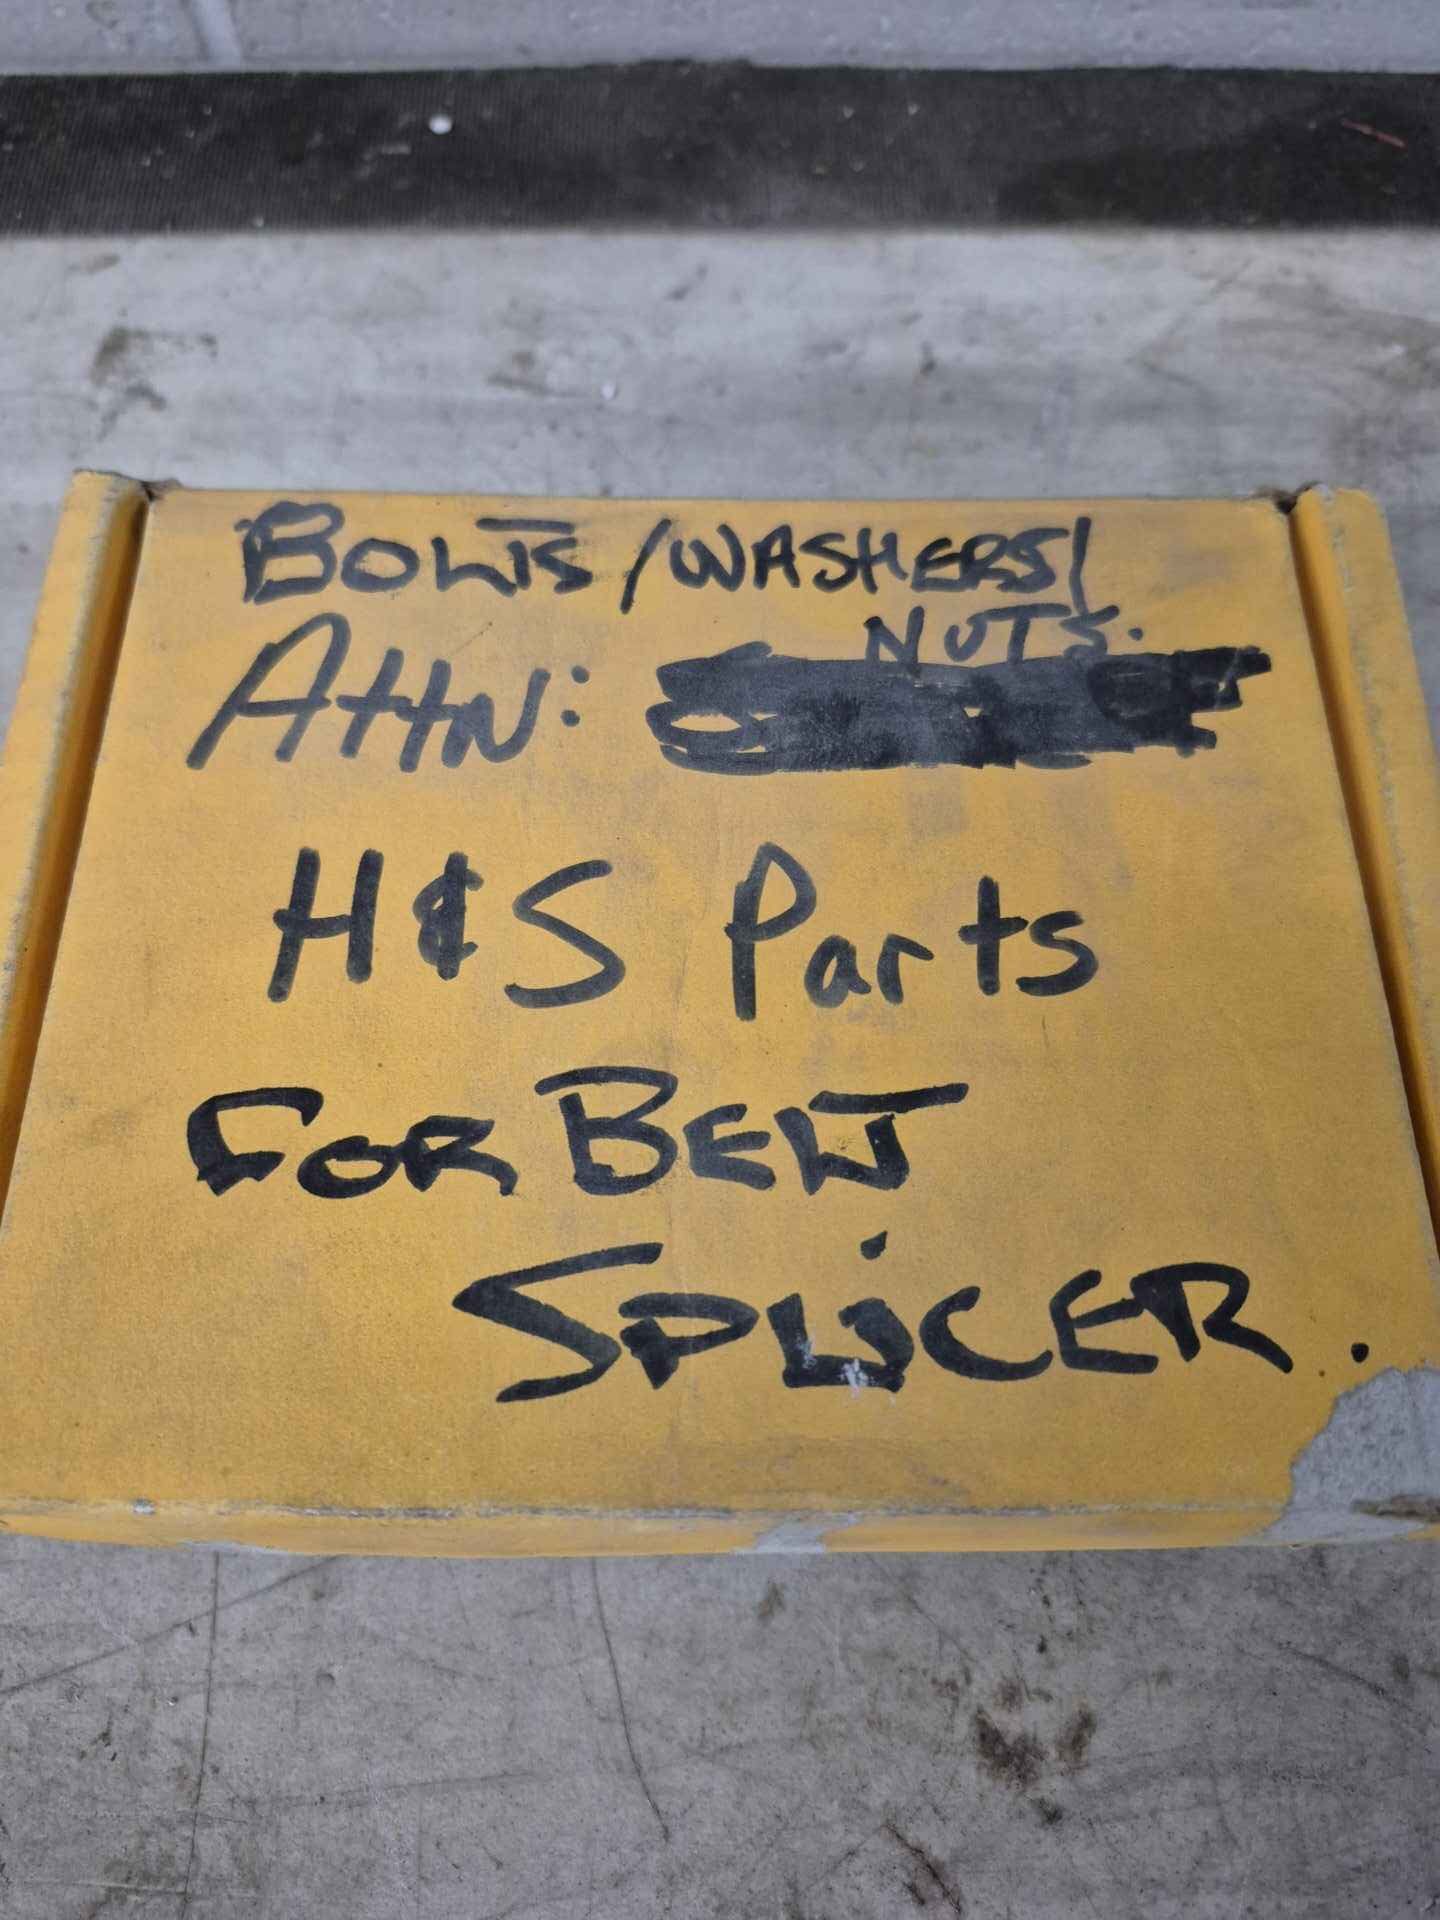 BOLTS/WASHERS/
NUTS.
Attn:
H&S Parts
FOR BELT
SPLiCER.